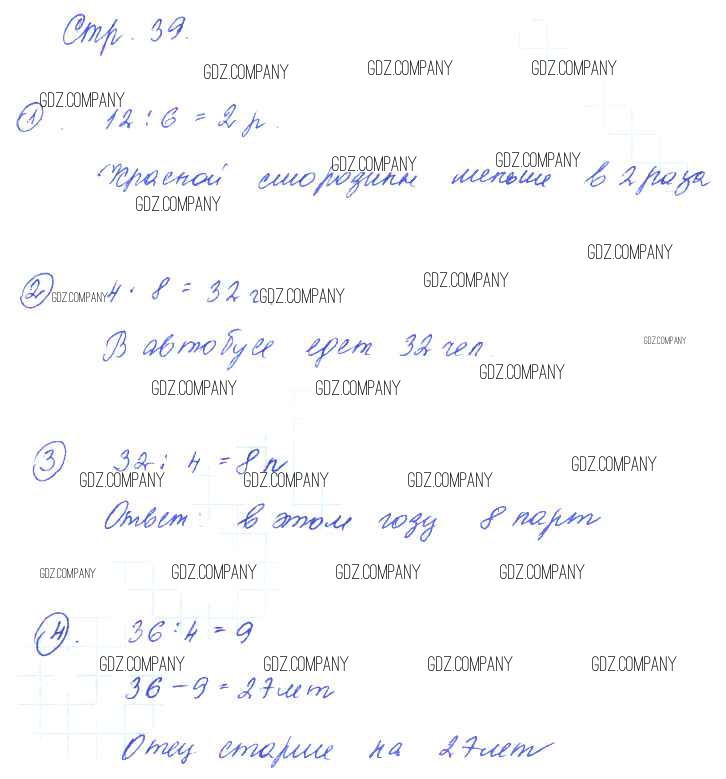 Стр. 39.
GDZ.COMPANY GDZ.COMPANY GDZ.COMPANY
GDZ.COMPANY
1. 12 : 6 = 2 р.
GDZ.COMPANY GDZ.COMPANY
Красной смородины меньше в 2 раза
GDZ.COMPANY
GDZ.COMPANY
GDZ.COMPANY
2 GDZ.COMPANY 4 · 8 = 32 ч GDZ.COMPANY
В автобусе едет 32 чел.
GDZ.COMPANY
GDZ.COMPANY
GDZ.COMPANY GDZ.COMPANY
3 32 : 4 = 8 п
GDZ.COMPANY
GDZ.COMPANY GDZ.COMPANY GDZ.COMPANY
Ответ: в этом году 8 парт
GDZ.COMPANY GDZ.COMPANY GDZ.COMPANY GDZ.COMPANY
4. 36 : 4 = 9
GDZ.COMPANY GDZ.COMPANY GDZ.COMPANY GDZ.COMPANY
36 - 9 = 27 лет
Отец старше на 27 лет